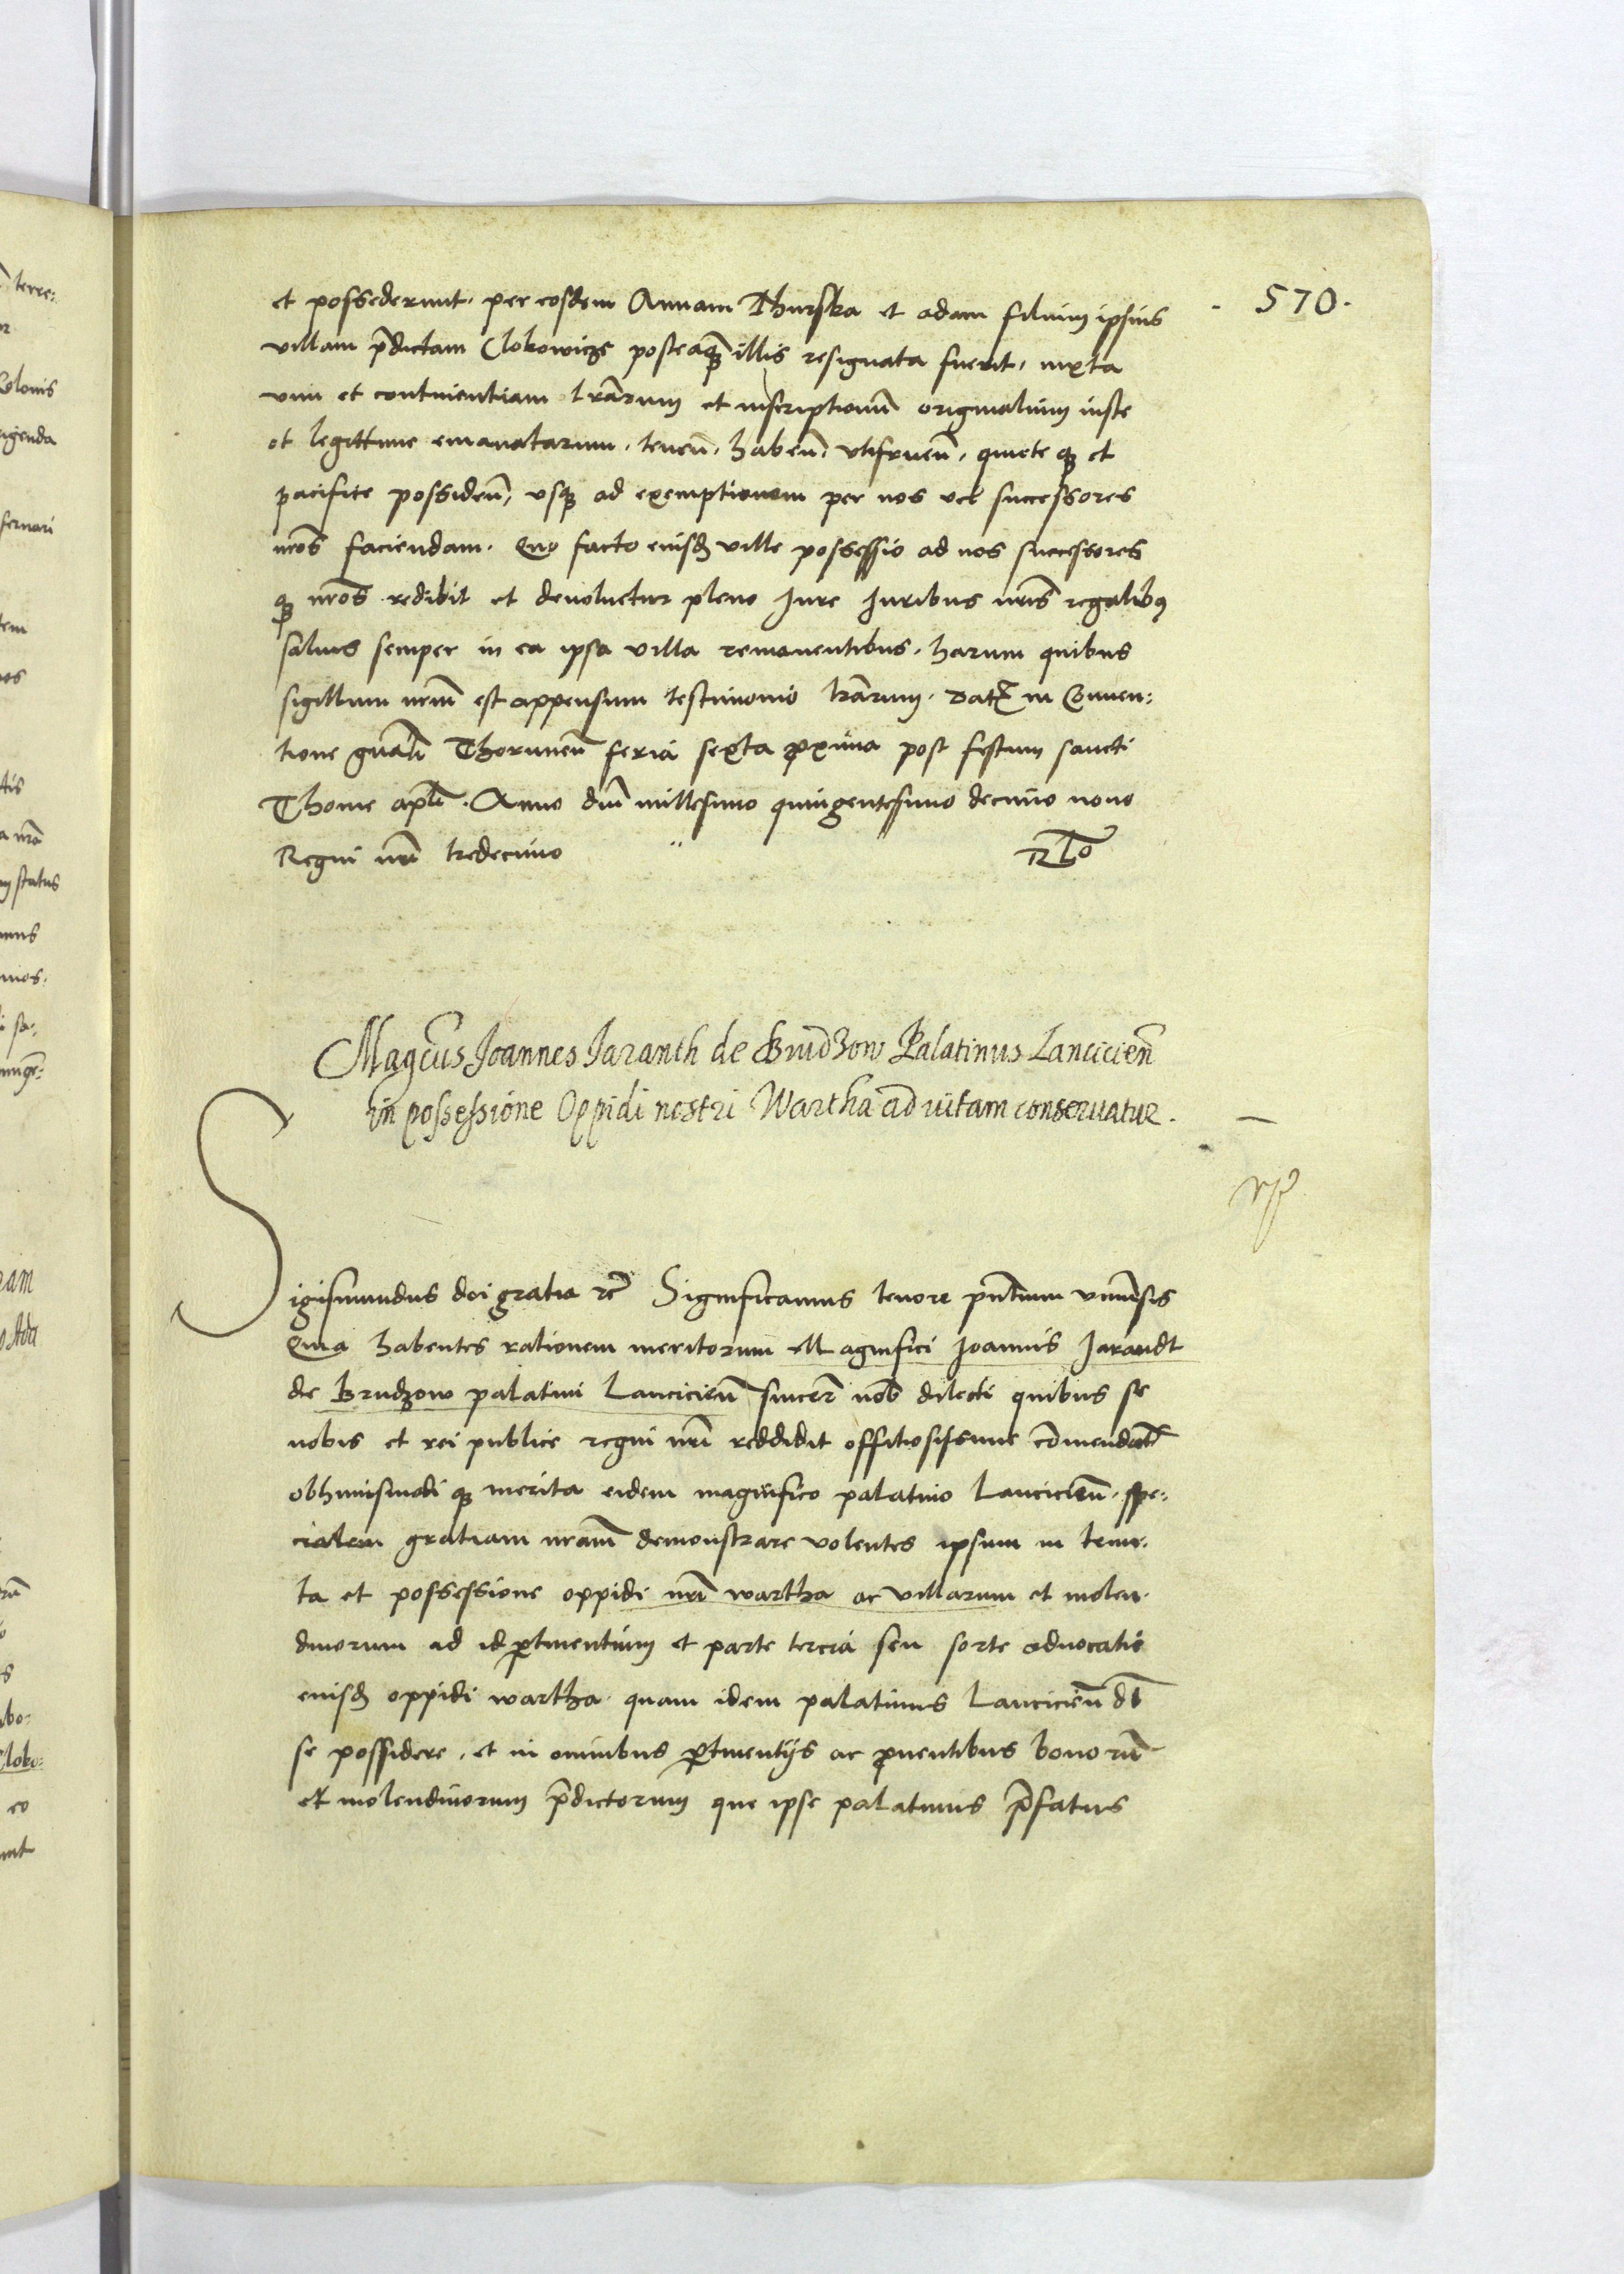 570.
et possederunt. per eosdem Annam Thurska et adam filium ipsius
villam p̄dictam Clobowicze posteaq̄ illis resignata fuerit, iuxta
vim et continentiam l̄rarum et inscriptionū originalium iuste
et legittime emanatarum, tenen̄. haben̄. vtifruen̄, quiete q̨ et
pacifice possiden̄, vsq̨ ad exemptionem per nos vel successores
nr̄os faciendam. Quo facto eiusd̄ ville possessio ad nos successores
q̨ nr̄os redibit et deuoluetur pleno Jure Juribus nr̄is regalibꝫ
saluis semper in ea ipsa villa remanentibus. harum quibus
sigillum nr̄um est appensum testimonio l̄rarum. Datꝝ in Conuen:
tione gn̄ali Thorunen̄ feria sexta ꝓxima post festum sancti
Thome apl̄i. Anno dn̄i millesimo quingentesimo decimo nono
Regni nr̄i tredecimo Rl̄o
Magc̄us Joannes Jaranth de Brudzow Palatinus Lancicien̄
in possessione Oppidi nostri Wartha ad uitam conseruatur.
Sigismundus dei gratia rc̄ Significamus tenore pn̄tium vniu̅sis
Quia habentes rationem meritorum Magnifici Joannis Jarandt
de Brudzow palatini Lancicien̄ sincer̄ nob̄ dilecti quibus se
nobis et rei publice regni nr̄i reddidit offitiosissime com̄endat̄
obhuiusmodi q̨ merita eidem magnifico palatino Lancicien̄. spe:
cialem gratiam nr̄am demonstrare volentes ipsum in tenu:
ta et possessione oppidi nr̄i wartha ac villarum et molen:
dinorum ad id ꝑtinentium et parte tercia seu sorte aduocatie
eiusd̄ oppidi wartha quam idem palatinus Lancicien̄ d̄t
se possidere, et in omnibus ꝑtinentijs ac ꝓuentibus bonorū
et molendinorum p̄dictorum que ipse palatinus p̄fatus